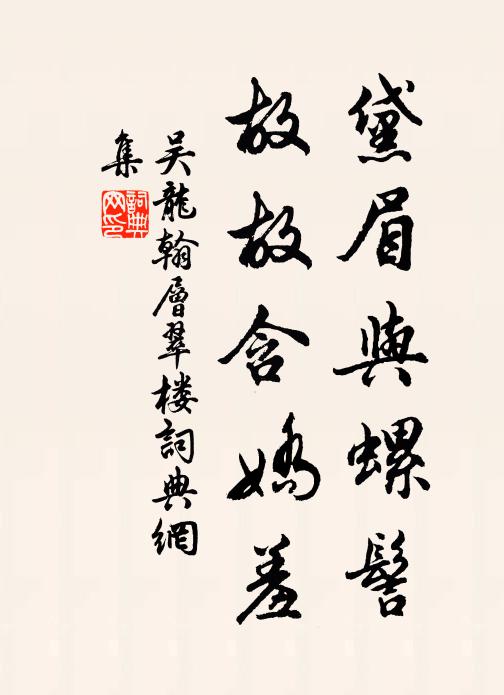 黛眉與螺髻
故故含嬌羞
吴龍翰層翠楼詞典網
集
詞典
网印